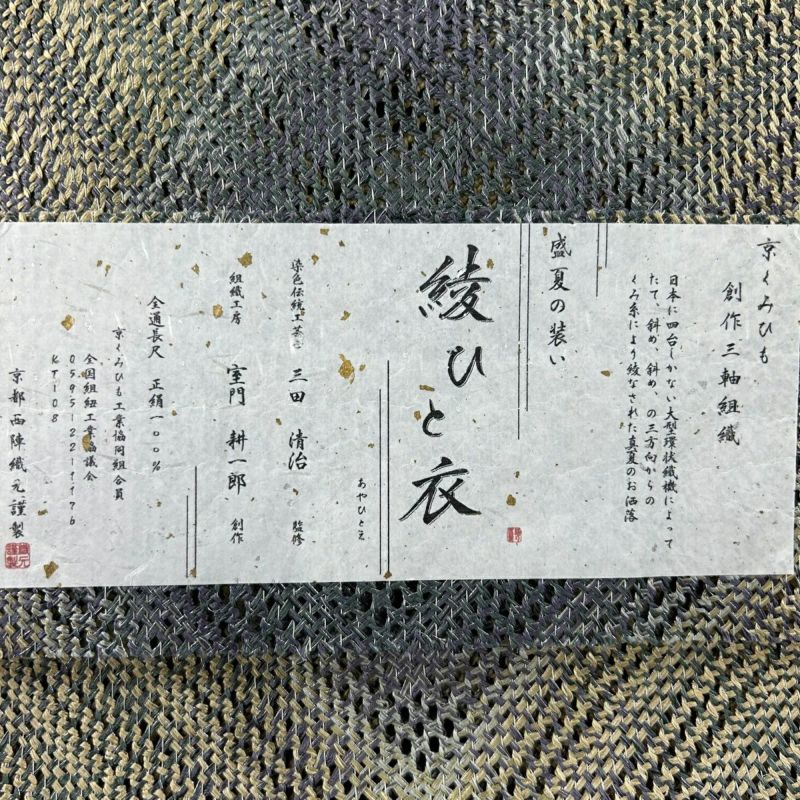 京くみひも
創作三軸組織
日本に四台しかない大型環状織機によって
たて、斜め、斜め、の三方向からの
くみ糸により綾なされた真夏のお洒落
盛夏の装い
綾ひと衣
あやひとえ
染色伝統工芸士 三田 清治 監修
組織工房 室門 耕一郎 創作
全通長尺 正絹一〇〇%
京くみひも工業協同組合員
全国組紐工業協議会
KT108
京都西陣織元謹製
織元謹製